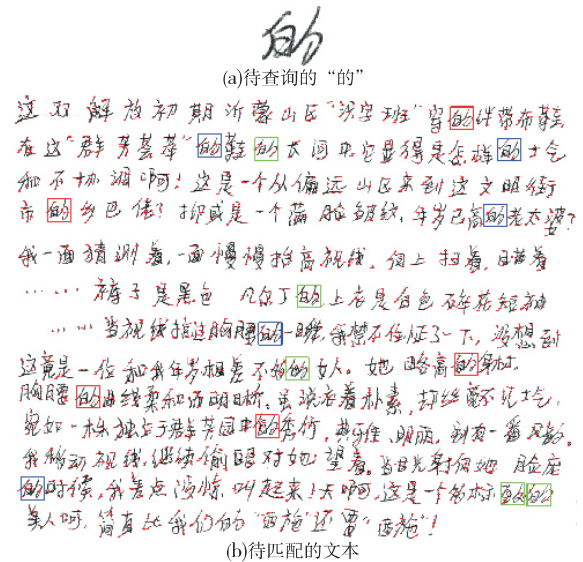 的
(a)待查询的“的”
这双解放初期沂蒙山区“识字班”穿的绊带布鞋
在这“群芳荟萃”的鞋的大河中它显得是怎样的土气
和不协调啊！这是一个从偏远山区来到这文明街
市的乡巴佬？抑或是一个满脸皱纹，年岁已高的老太婆？
我一面猜测着，一面慢慢抬高视线。向上扫着，目带着
……裤子是黑色 凡尔丁的上衣是白色碎花短袖
……当视线掠过胸腰的一瞬，我禁不住怔了一下，没想到
这竟是一位和我年岁相差不多的女人。她略高的身材，
胸腰的曲线柔和而明晰。虽说衣着朴素，却丝毫不见土气，
宛如一株独立于群芳园中的秀竹，其佳、明丽，别有一番风韵。
我移动视线，继续偷眼对她望着。当目光射向她脸庞
的时候，我差点没惊叫起来！天啊，这是一个多标致的的
美人啊，简直比我们的“西施”还要“西施”！
(b)待匹配的文本